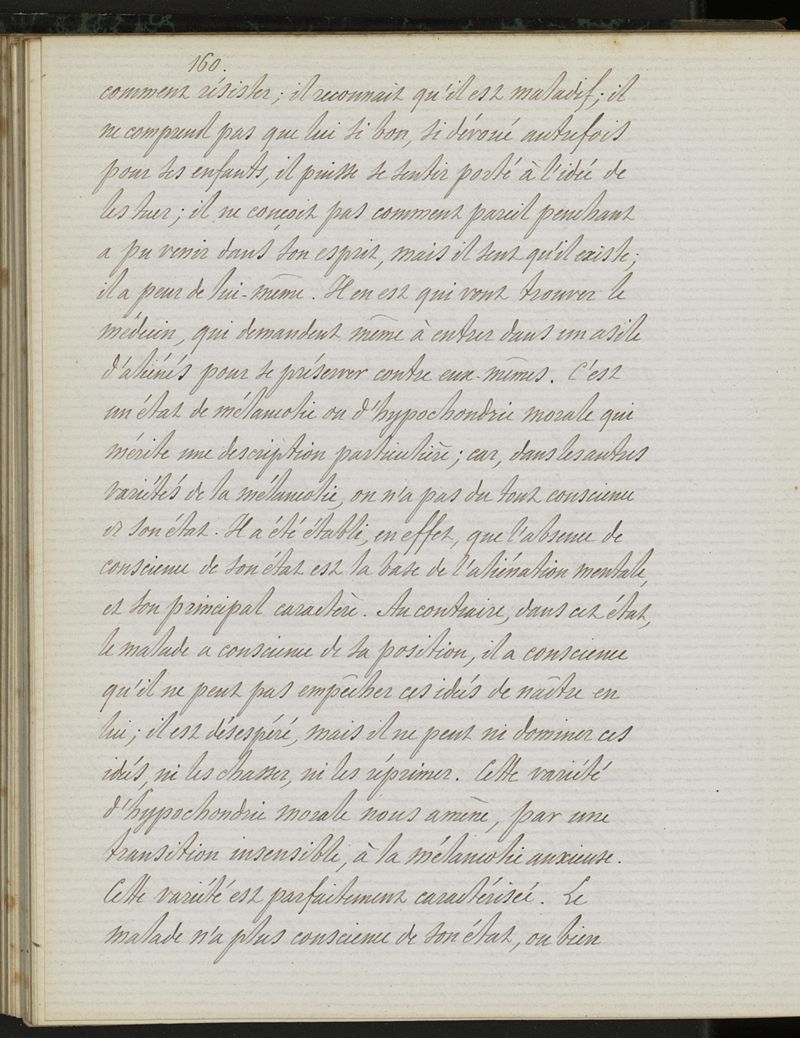 160.
comment résister; il reconnait qu'il est maladif; il
ne comprend pas que lui si bon, si dévoué autrefois
pour ses enfants, il puisse se sentir porté à l'idée de
les tuer; il ne conçoit pas comment pareil penchant
a pu venir dans son esprit, mais il sent qu'il existe;
il a peur de lui-même. Il en est qui vont trouver le
médecin, qui demandent même à entrer dans un asile
d'aliénés pour se préserver contre eux-mêmes. C'est
un état de mélancolie ou d'hypochondrie morale qui
mérite une description particulière; car, dans les autres
variétés de la mélancolie, on n'a pas du tout conscience
de son état. Il a été établi, en effet, que l'absence de
conscience de son état est la base de l'aliénation mentale,
et son principal caractère. Au contraire, dans cet état,
le malade a conscience de sa position, il a conscience
qu'il ne peut pas empêcher ces idées de naître en
lui; il est désespéré, mais il ne peut ni dominer ces
idées, ni les chasser, ni les réprimer. Cette variété
d'hypochondrie morale nous amène, par une
transition insensible, à la mélancolie anxieuse.
Cette variété est parfaitement caractérisée. Le
malade n'a plus conscience de son état, ou bien